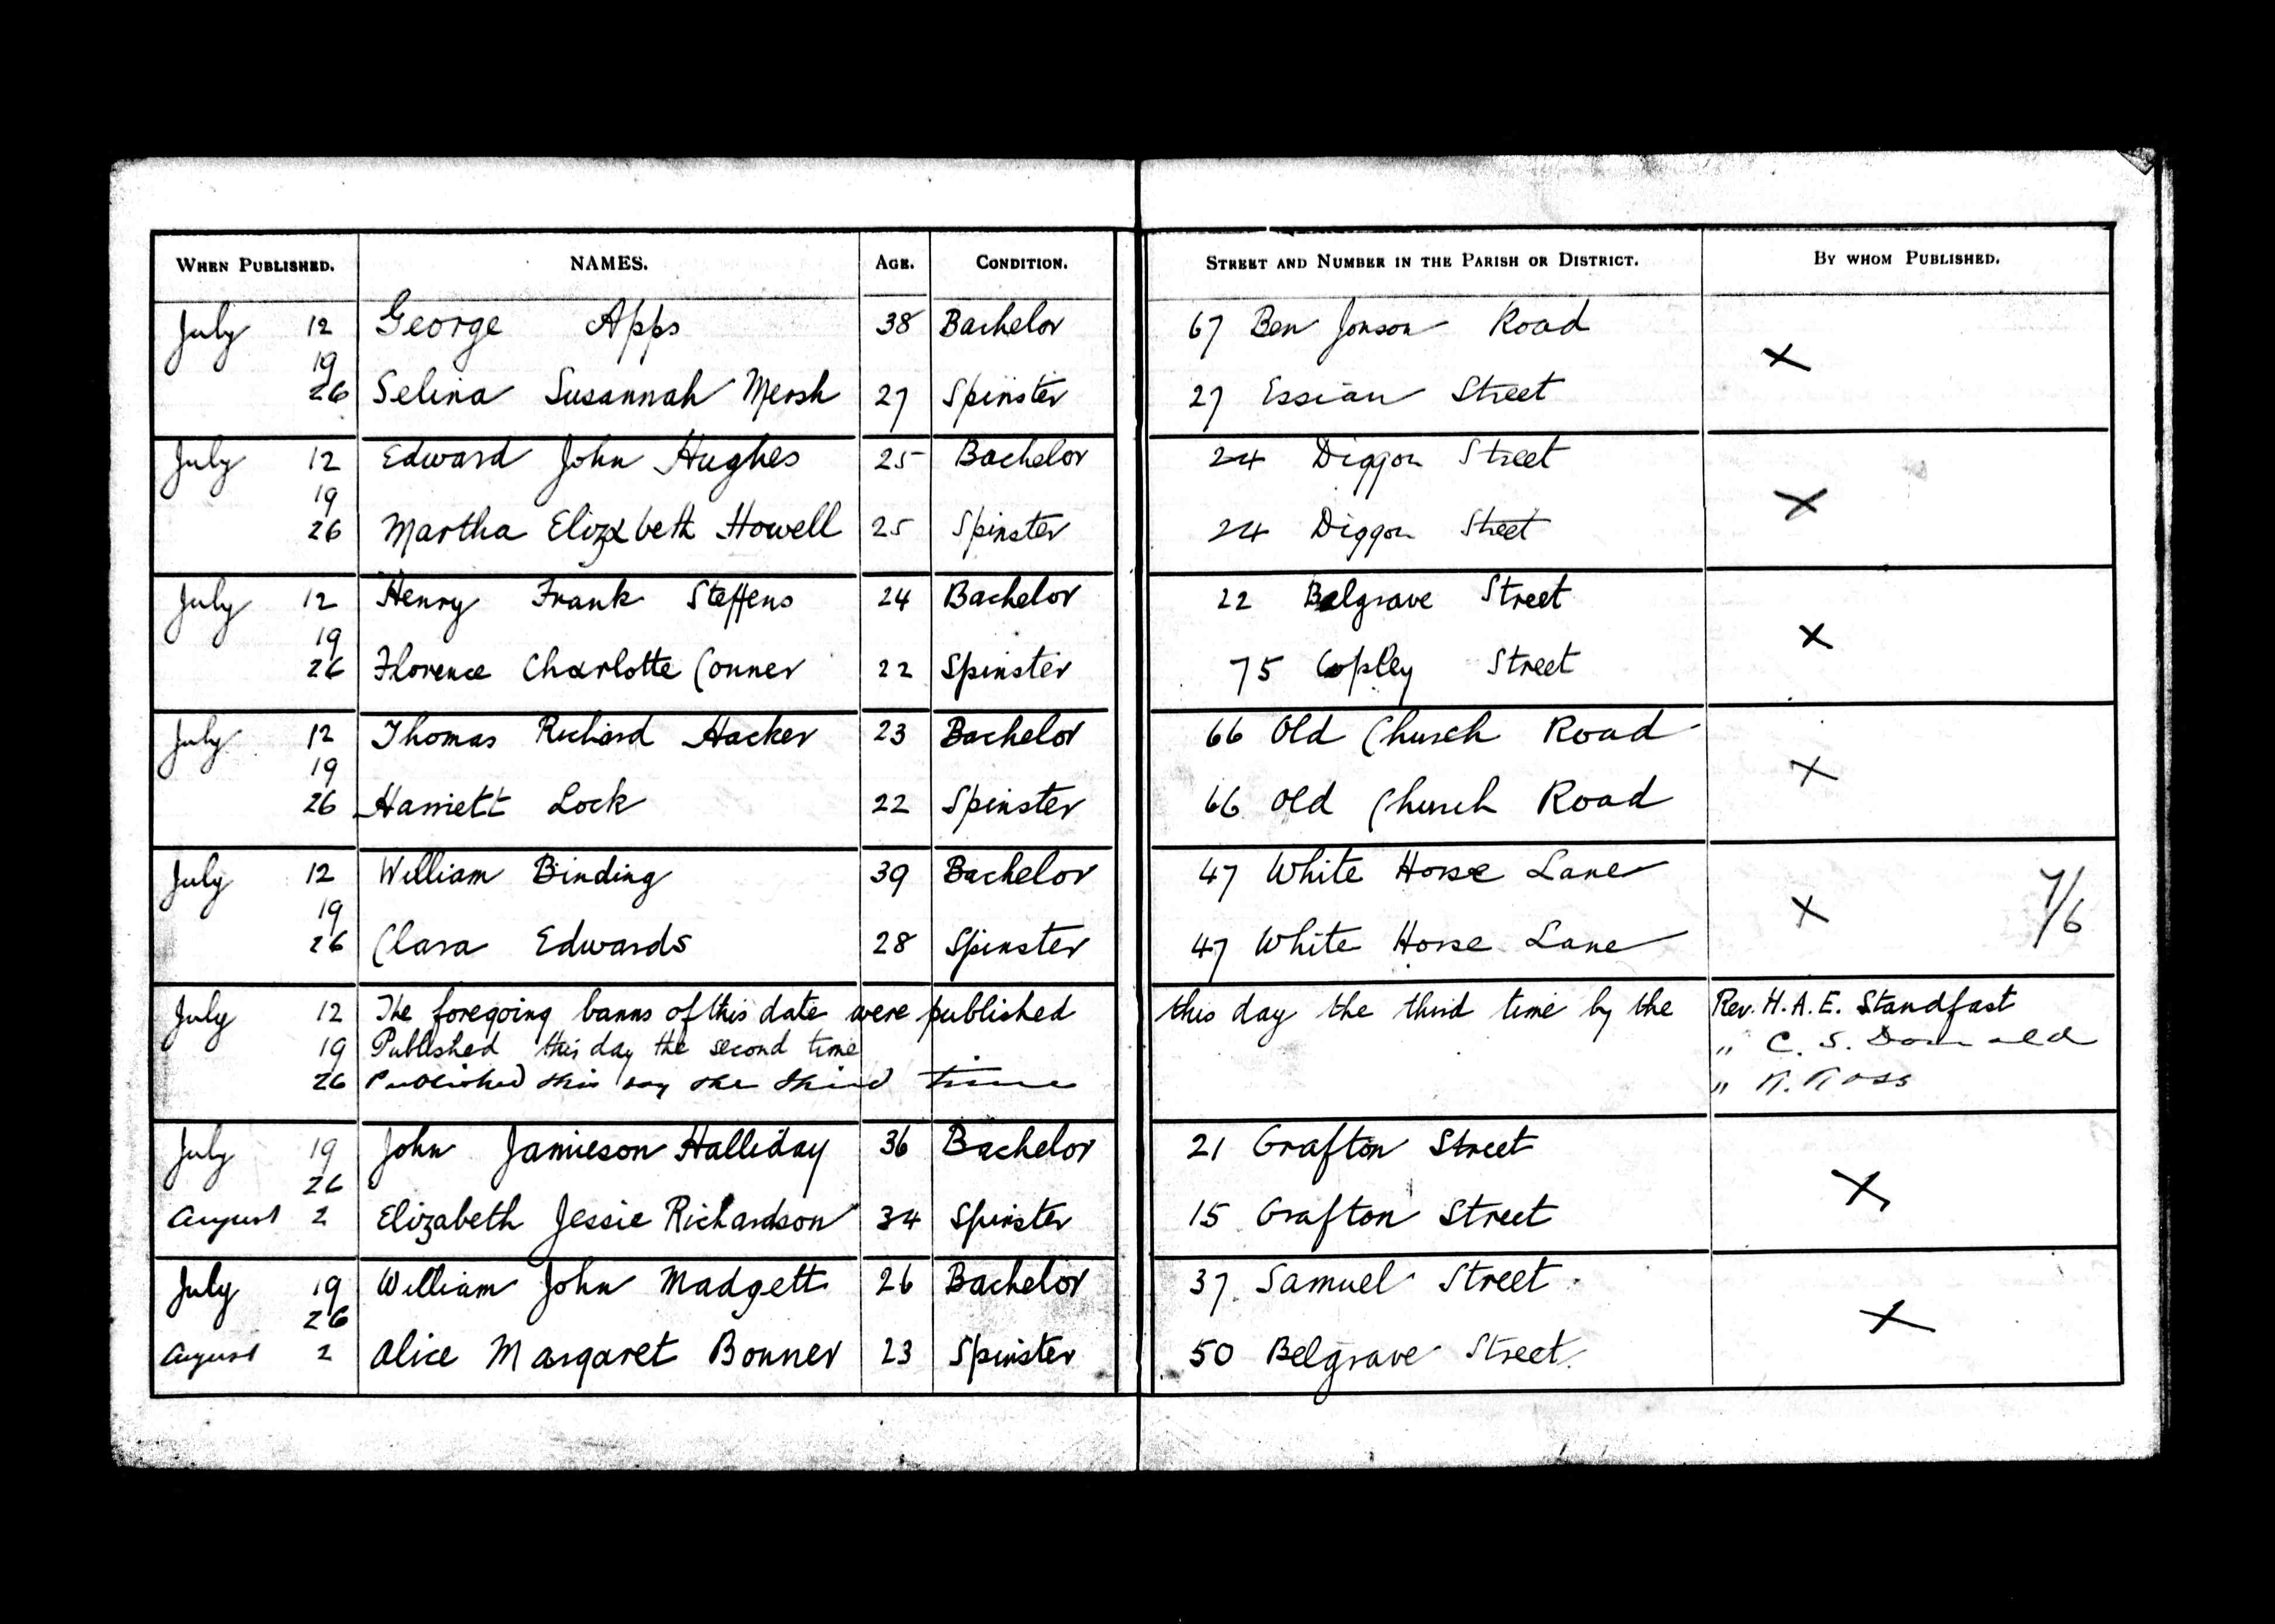 WHEN PUBLISHED. NAMES. AGE. CONDITION. STREET AND NUMBER IN THE PARISH OR DISTRICT. BY WHOM PUBLISHED.
July 12 George Apps 38 Bachelor 67 Ben Jonson Road
19 ×
26 Selina Susannah Mersh 27 Spinster 27 Essian Street
July 12 Edward John Hughes 25 Bachelor 24 Diggon Street
19 ×
26 Martha Elizabeth Howell 25 Spinster 24 Diggon Street
July 12 Henry Frank Steffens 24 Bachelor 22 Belgrave Street
19 ×
26 Florence Charlotte Conner 22 Spinster 75 Copley Street
July 12 Thomas Richard Hacker 23 Bachelor 66 Old Church Road
19 ×
26 Harriett Lock 22 Spinster 66 Old Church Road
July 12 William Binding 39 Bachelor 47 White Horse Lane
19 × 7/6
26 Clara Edwards 28 Spinster 47 White Horse Lane
July 12 The foregoing banns of this date were published this day the third time by the Rev. H. A. E. Standfast
19 Published this day the second time " C. S. Donald
26 Published this day the third time " R. Ross
July 19 John Jamieson Halliday 36 Bachelor 21 Grafton Street
26 ×
August 2 Elizabeth Jessie Richardson 34 Spinster 15 Grafton Street
July 19 William John Madgett 26 Bachelor 37 Samuel Street
26 ×
August 2 Alice Margaret Bonner 23 Spinster 50 Belgrave Street